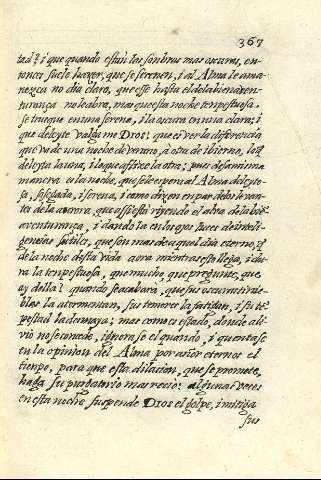 367
tad? i que quando están las sombras mas oscuras, en-
tonces suele hazer, que se serenen, i al Alma le ama-
nezca no dia claro, que esse hasta el de la bienaven-
turança no le abra, mas que esta noche tempestuosa,
se trueque en una serena, i la oscura en una clara; i
que deleyte valgame DIOS! que ei ver la diferencia
que va de una noche de verano, à otra de ibierno, lo q̃
deleyta la una, i lo que aflixe la otra; pues desa misma
manera es la noche, que se le espera al Alma deleyto-
sa, sosegada, i serena, i como dizen en par de los levan-
tes de la aurora, que assi està rijendo el alva de la biẽ
aventurança, i dando la en los ojos luces de inteli-
gencias sutiles, que son mas de aquel dia eterno, q̃
de la noche desta vida. aora mientras esto llega, i du
ra la tempestuosa, que mucho que pregunte, que
ay della? quando se acabarà, que sus oscuras tinie-
blas la atormentan, sus temores la fatigan, i su tẽ
pestad la desmaya; mas como es estado, donde ali-
vio no se concede, ignorase el quando, i quentase
en la opinion del Alma por años eternos el
tiempo, para que esta dilacion, que se promete,
haga su purgatorio mas recio: algunas veces
en esta noche suspende DIOS el golpe, i mitiga
sus